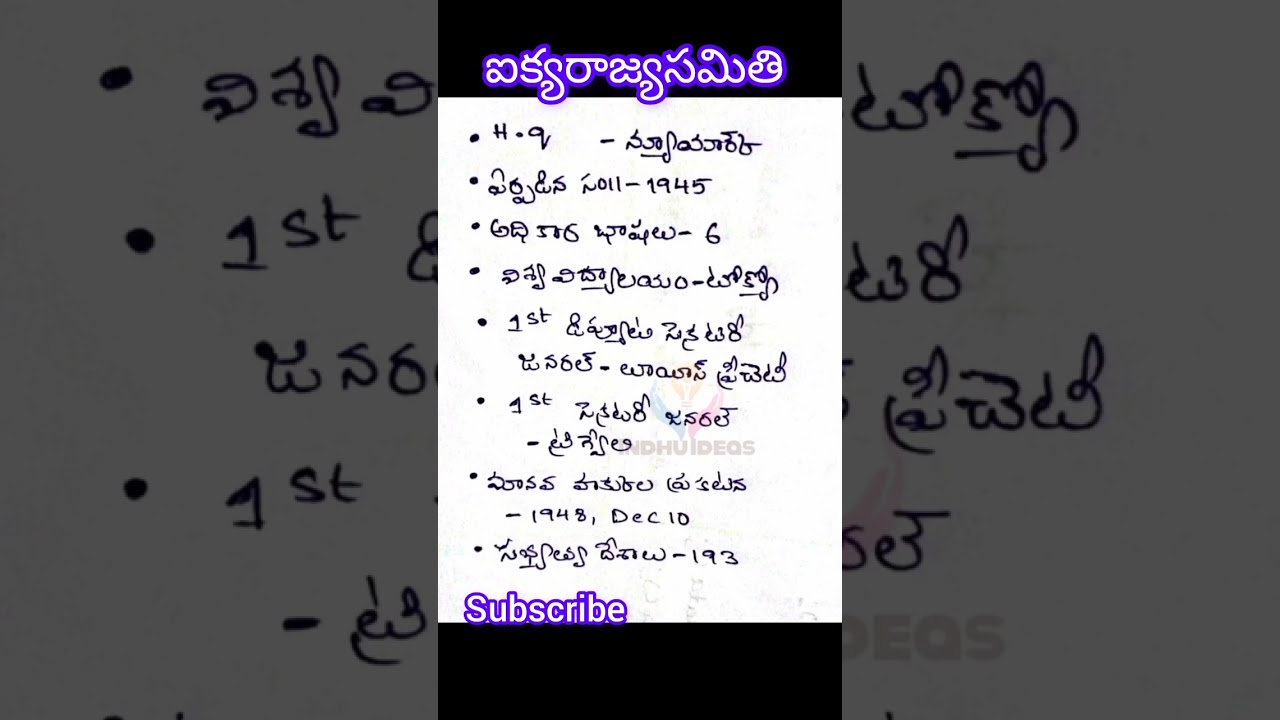 ఐక్యరాజ్యసమితి
• H.q - న్యూయార్క్
• ఏర్పడిన సం॥-1945
• అధికార భాషలు- 6
• విశ్వవిద్యాలయం-టోక్యో
• 1st డిప్యూటి సెక్రటరీ
జనరల్ - లూయీస్ ఫ్రీచెటీ
• 1st సెక్రటరీ జనరల్
- ట్రిగ్వేలి
INDHU IDEAS
• మానవ హక్కుల ప్రకటన
- 1948, Dec 10
• సభ్యత్వ దేశాలు -193
Subscribe